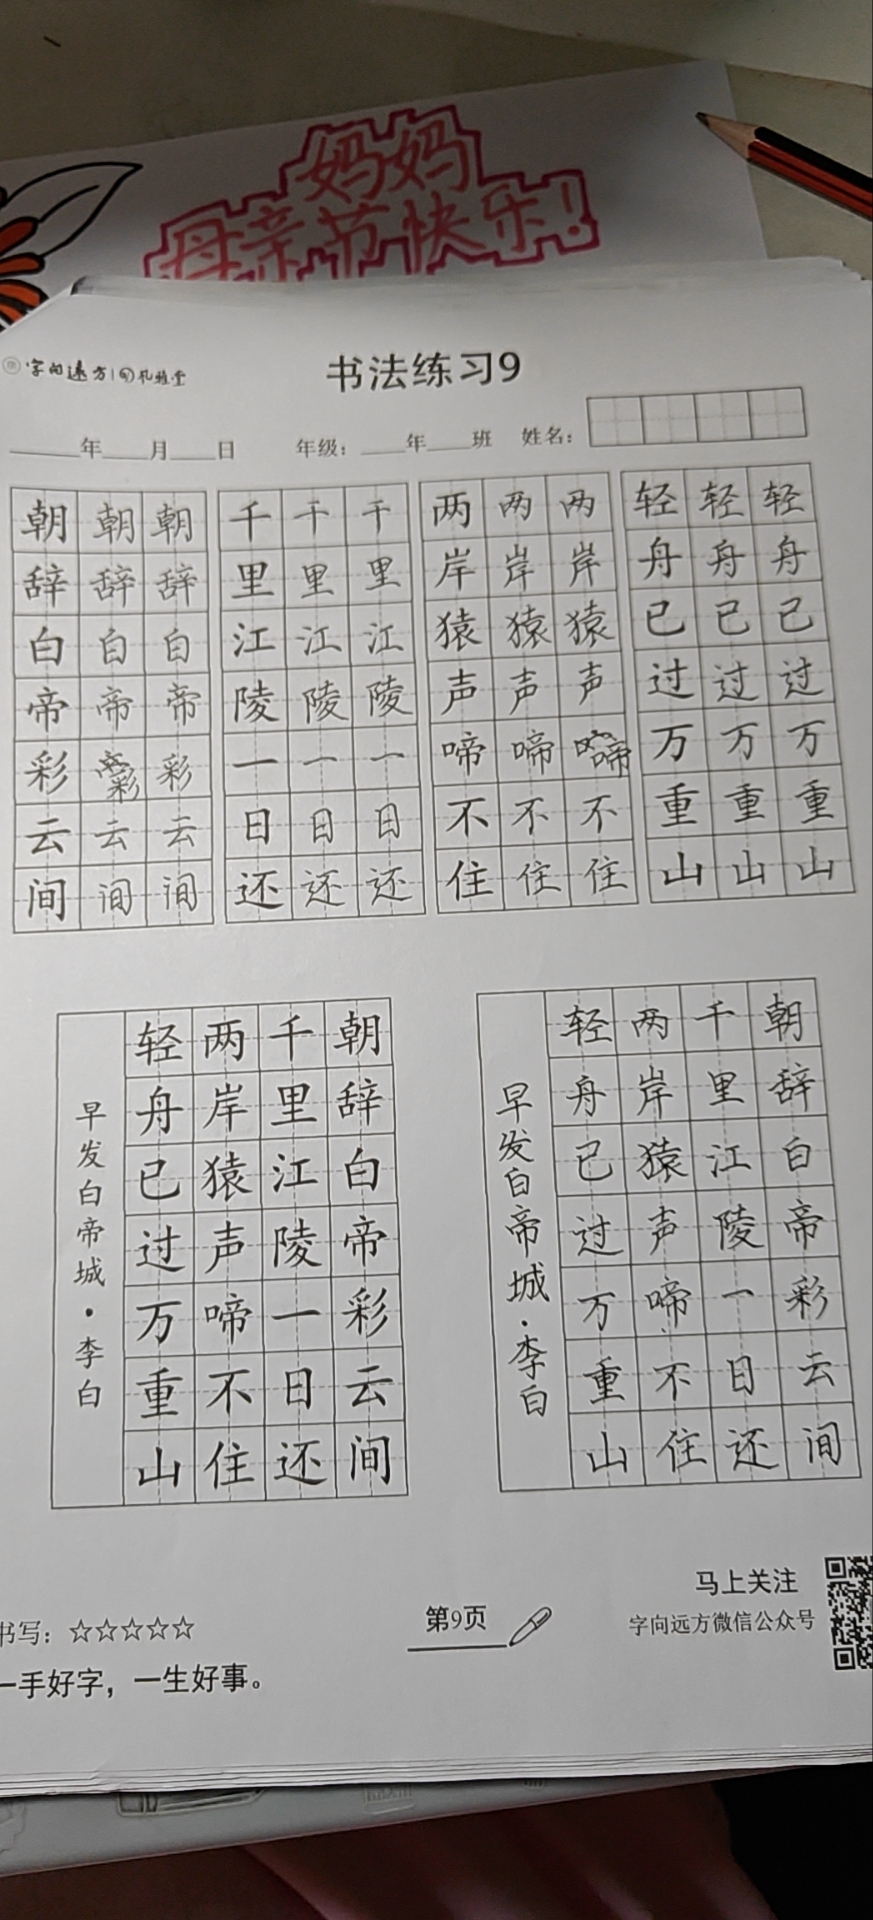 妈妈
母亲节快乐!
字向远方 札雅堂
书法练习9
____年____月____日 年级：____年____班 姓名：
朝朝朝 千千千 两两两 轻轻轻
辞辞辞 里里里 岸岸岸 舟舟舟
白白白 江江江 猿猿猿 已已已
帝帝帝 陵陵陵 声声声 过过过
彩彩彩 一一一 啼啼啼 万万万
云云云 日日日 不不不 重重重
间间间 还还还 住住住 山山山
朝辞白帝彩云间
千里江陵一日还
两岸猿声啼不住
轻舟已过万重山
早发白帝城·李白
朝辞白帝彩云间
千里江陵一日还
两岸猿声啼不住
轻舟已过万重山
早发白帝城·李白
书写：☆☆☆☆☆
一手好字，一生好事。
第9页
马上关注
字向远方微信公众号